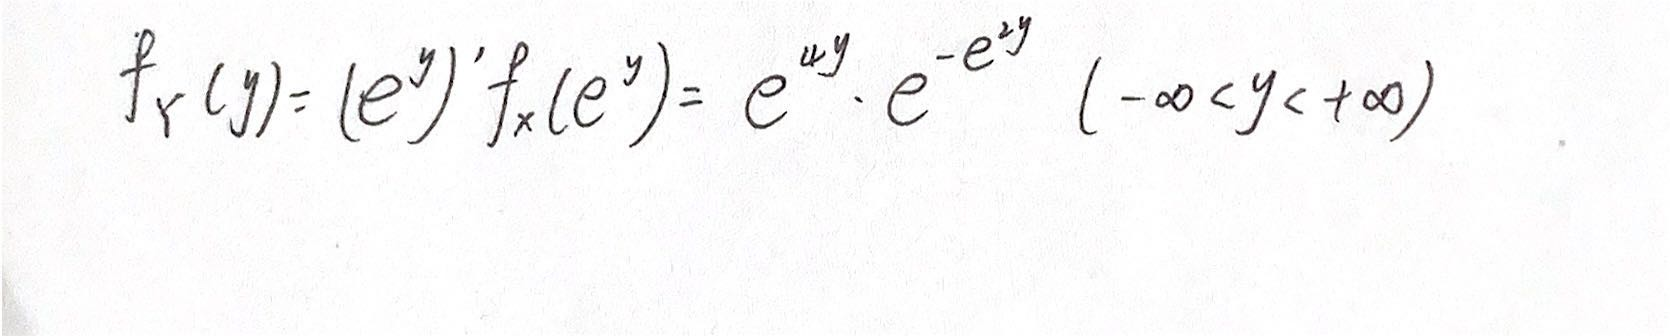 f_Y(y) = (e^y)' f_X(e^y) = e^{4y} · e^{-e^{2y}} (-∞ < y < +∞)